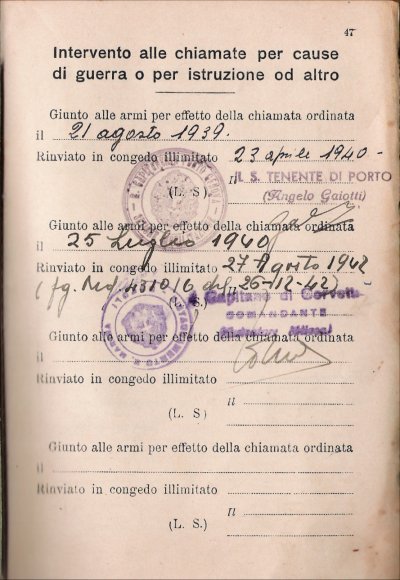 47
Intervento alle chiamate per cause
di guerra o per istruzione od altro
Giunto alle armi per effetto della chiamata ordinata
il 21 agosto 1939.
Rinviato in congedo illimitato 23 aprile 1940-
Il S. TENENTE DI PORTO
(L. S.) (Angelo Gaiotti)
Giunto alle armi per effetto della chiamata ordinata
il 25 Luglio 1940
Rinviato in congedo illimitato 27 Agosto 1942
(fg. 26-12-42)
(L. S.) Capitano di Corvetta
COMANDANTE
Giunto alle armi per effetto della chiamata ordinata
il
Rinviato in congedo illimitato
Il
(L. S)
Giunto alle armi per effetto della chiamata ordinata
il
Rinviato in congedo illimitato
Il
(L. S.)